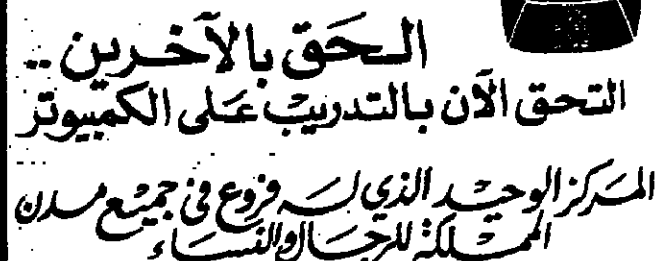 الحق بالآخرين ..
التحق الآن بالتدريب على الكمبيوتر
المركز الوحيد الذي له فروع في جميع مدن
المملكة للرجال والنساء